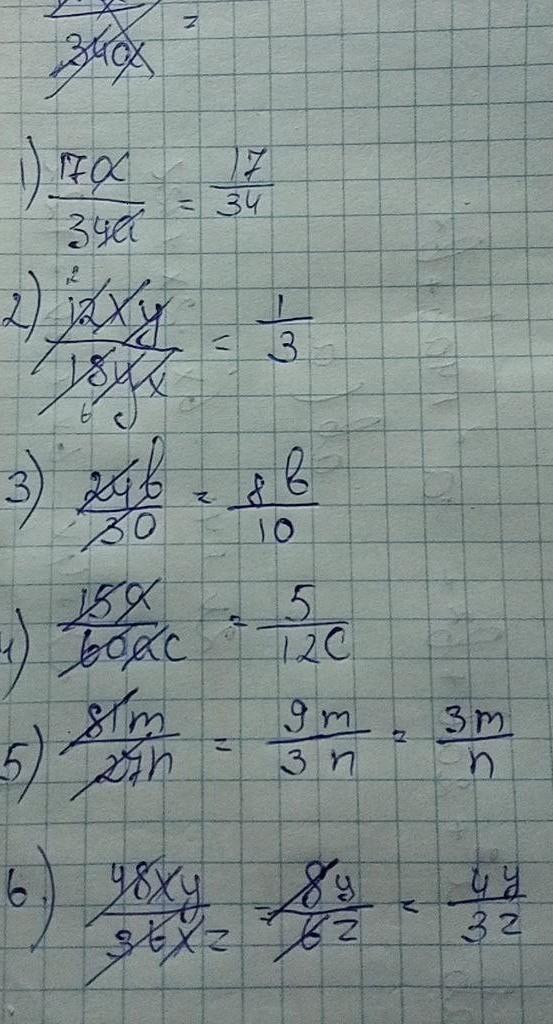 340x =
1) 17a/34a = 17/34
2) 12xy/18yx = 1/3
2
6
3) 24b/30 = 8b/10
4) 15a/60ac = 5/12c
5) 81m/27n = 9m/3n = 3m/n
6) 48xy/36xz = 8y/6z = 4y/3z